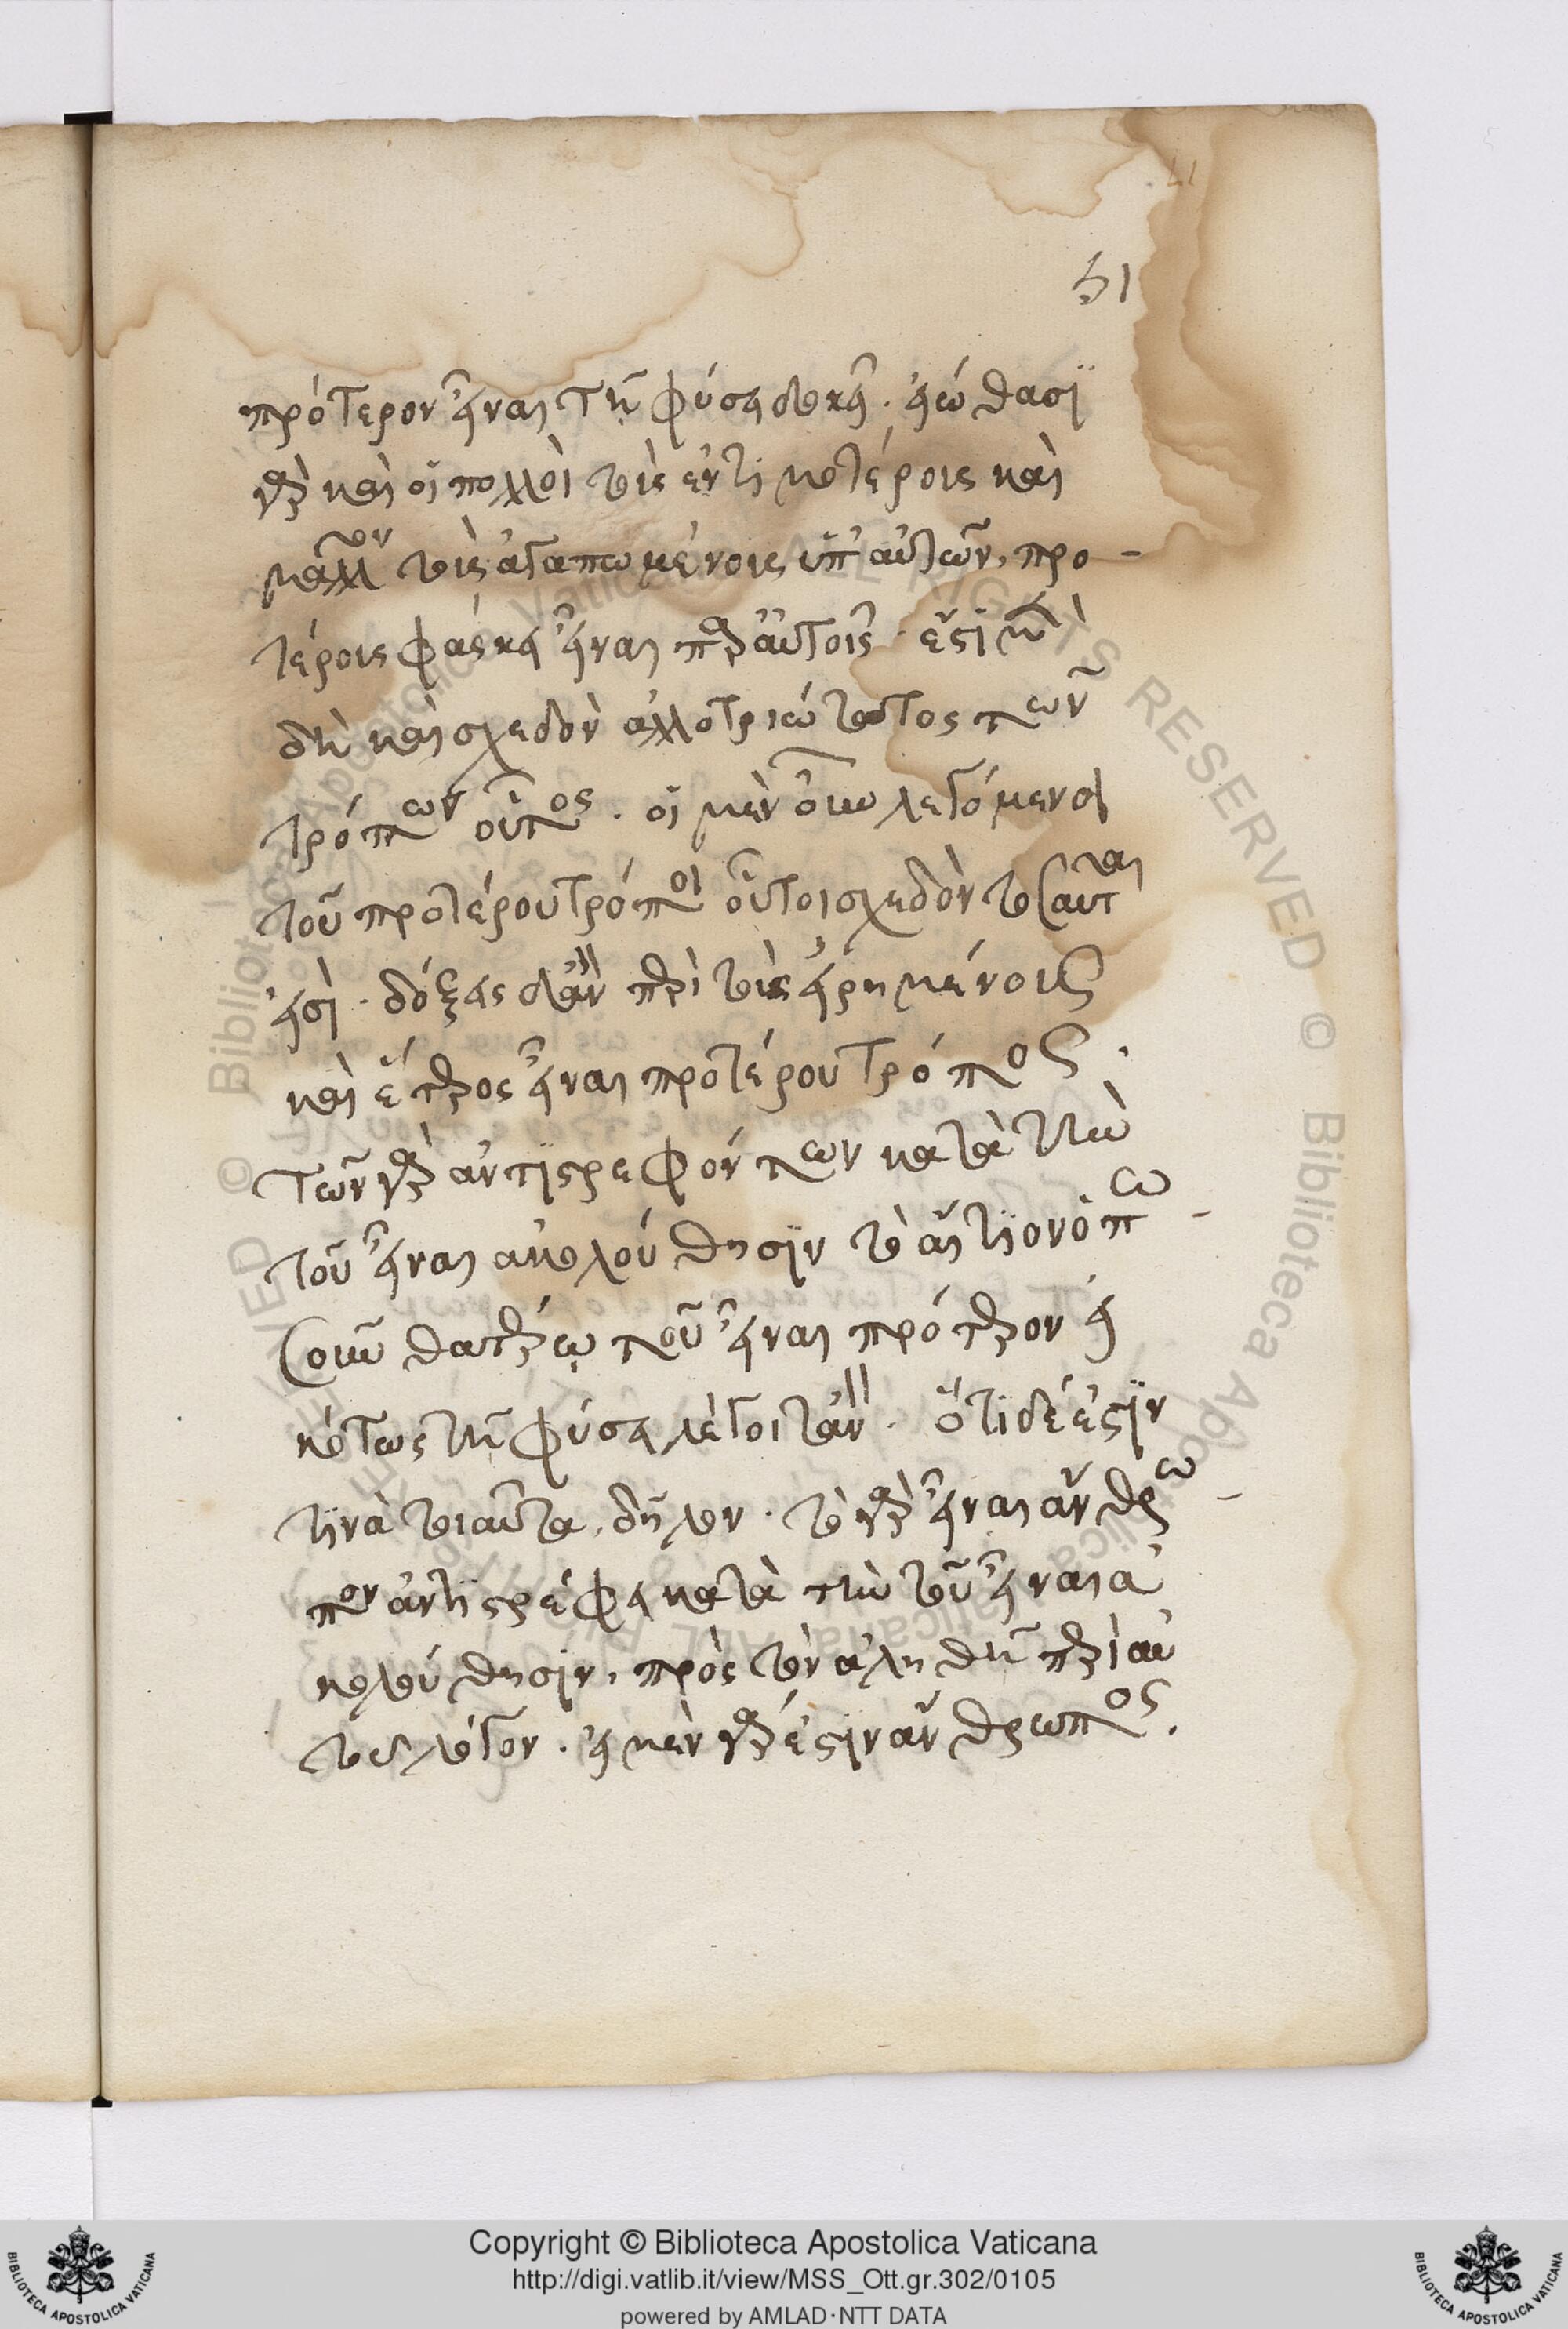 51
πρότερον εἶναι τῆ φύσει δοκεῖ. εἰώθασϊ
γὰρ καὶ οἱ πολλοὶ τοὺς ἐντιμοτέρους καὶ
μᾶλλον τοὺς ἀγαπωμένους ὑπ' αὐτῶν, προ-
τέρους φάσκειν εἶναι παρ' αὐτοῖς. ἔστι μὲν
δὴ καὶ σχεδὸν ἀλλοτριώτατος τῶν
τρόπων οὗτος. οἱ μὲν οὖν λεγόμενοι
τοῦ προτέρου τρόποι οὗτοι σχεδὸν τοσαῦται
εἰσὶ. δόξειε δ' ἂν παρὰ τοὺς εἰρημένους
καὶ ἕτερος εἶναι προτέρου τρόπος.
τῶν γὰρ ἀντιστρεφόντων κατὰ τὴν
τοῦ εἶναι ἀκολούθησιν τὸ αἴτιον ὁπω-
σοῦν θατέρω τοῦ εἶναι πρότερον εἰ
κότως τῆ φύσει λέγοιτ' ἄν. ὅτι δέ ἐστιν
τινὰ τοιαῦτα, δῆλον. τὸ γὰρ εἶναι ἄνθρω-
πον ἀντιστρέφει κατὰ τὴν τοῦ εἶναι ἀ
κολούθησιν, πρὸς τὸν ἀληθῆ περὶ αὐ
τοῦ λόγον. εἰ μὲν γάρ ἐστιν ἄνθρωπος.
Copyright © Biblioteca Apostolica Vaticana
http://digi.vatlib.it/view/MSS_Ott.gr.302/0105
powered by AMLAD·NTT DATA